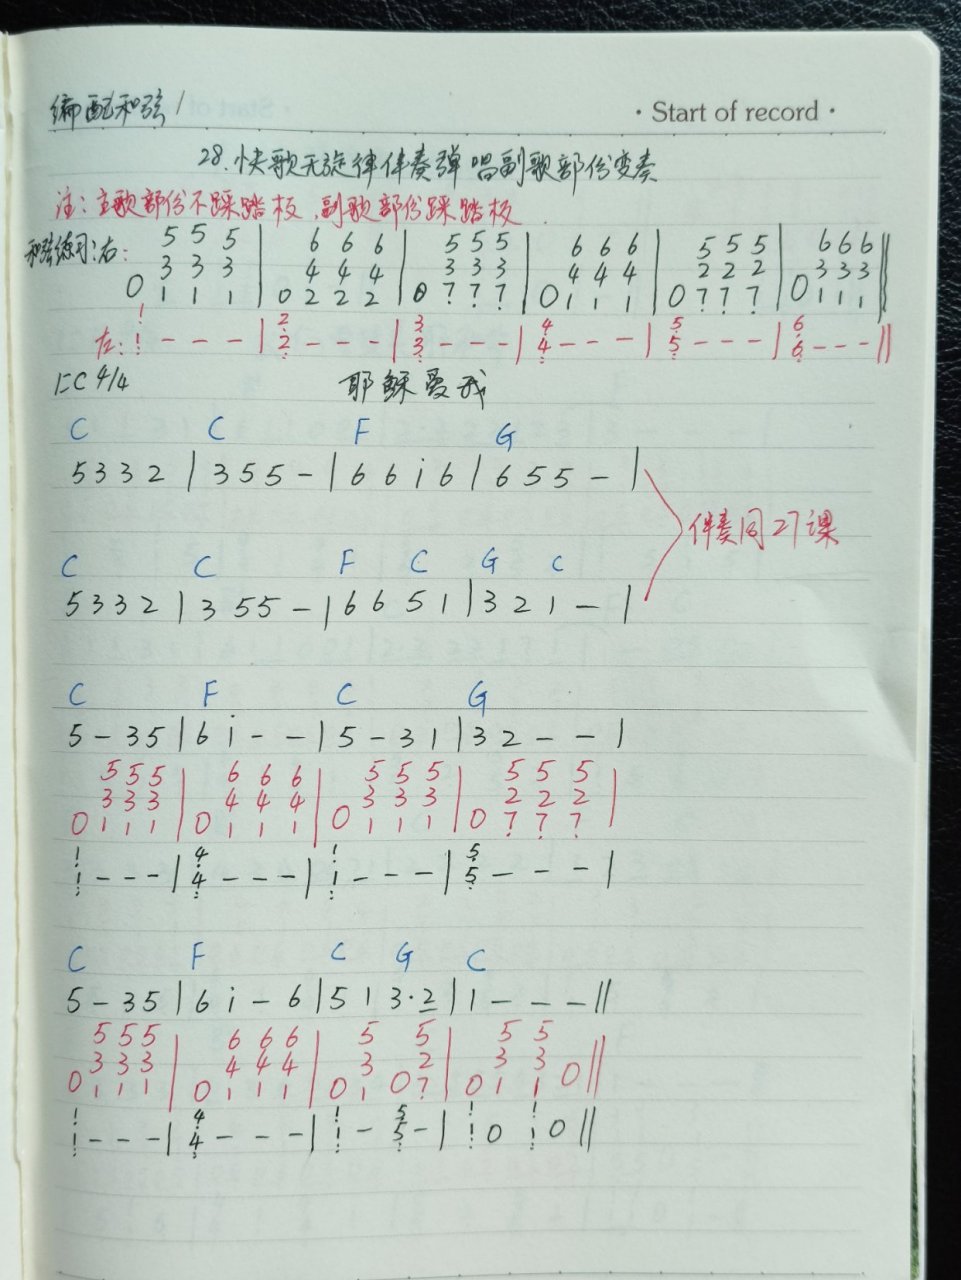 编配和弦 1
· Start of record ·
28.快歌无旋律伴奏弹唱副歌部份变奏
注:主歌部份不踩踏板、副歌部份踩踏板.
5 5 5 | 6 6 6 | 5 5 5 | 6 6 6 | 5 5 5 | 6 6 6 ||
和弦练习:右: 3 3 3 | 4 4 4 | 3 3 3 | 4 4 4 | 2 2 2 | 3 3 3 ||
0 1 1 1 | 0 2 2 2 | 0 7̣ 7̣ 7̣ | 0 1 1 1 | 0 7̣ 7̣ 7̣ | 0 1 1 1 ||
1̣ | 2̣ | 3̣ | 4̣ | 5̣ | 6̣
左: 1 - - - | 2 - - - | 3 - - - | 4 - - - | 5 - - - | 6 - - - ||
1=C 4/4 耶稣爱我
C C F G
5 3 3 2 | 3 5 5 - | 6 6 i 6 | 6 5 5 - |
伴奏同27课
C C F C G C
5 3 3 2 | 3 5 5 - | 6 6 5 1 | 3 2 1 - |
C F C G
5 - 3 5 | 6 i - - | 5 - 3 1 | 3 2 - - |
5 5 5 | 6 6 6 | 5 5 5 | 5 5 5 |
3 3 3 | 4 4 4 | 3 3 3 | 2 2 2 |
0 1 1 1 | 0 1 1 1 | 0 1 1 1 | 0 7̣ 7̣ 7̣ |
1̣ | 4̣ | 1̣ | 5̣
1 - - - | 4 - - - | 1 - - - | 5 - - - |
C F C G C
5 - 3 5 | 6 i - 6 | 5 1 3·2 | 1 - - - ||
5 5 5 | 6 6 6 | 5 5 | 5 5 ||
3 3 3 | 4 4 4 | 3 2 | 3 3 ||
0 1 1 1 | 0 1 1 1 | 0 1 0 7̣ | 0 1 1 0 ||
1̣ | 4̣ | 1̣ 5̣ | 1̣ 1̣
1 - - - | 4 - - - | 1 - 5 - | 1 0 1 0 ||